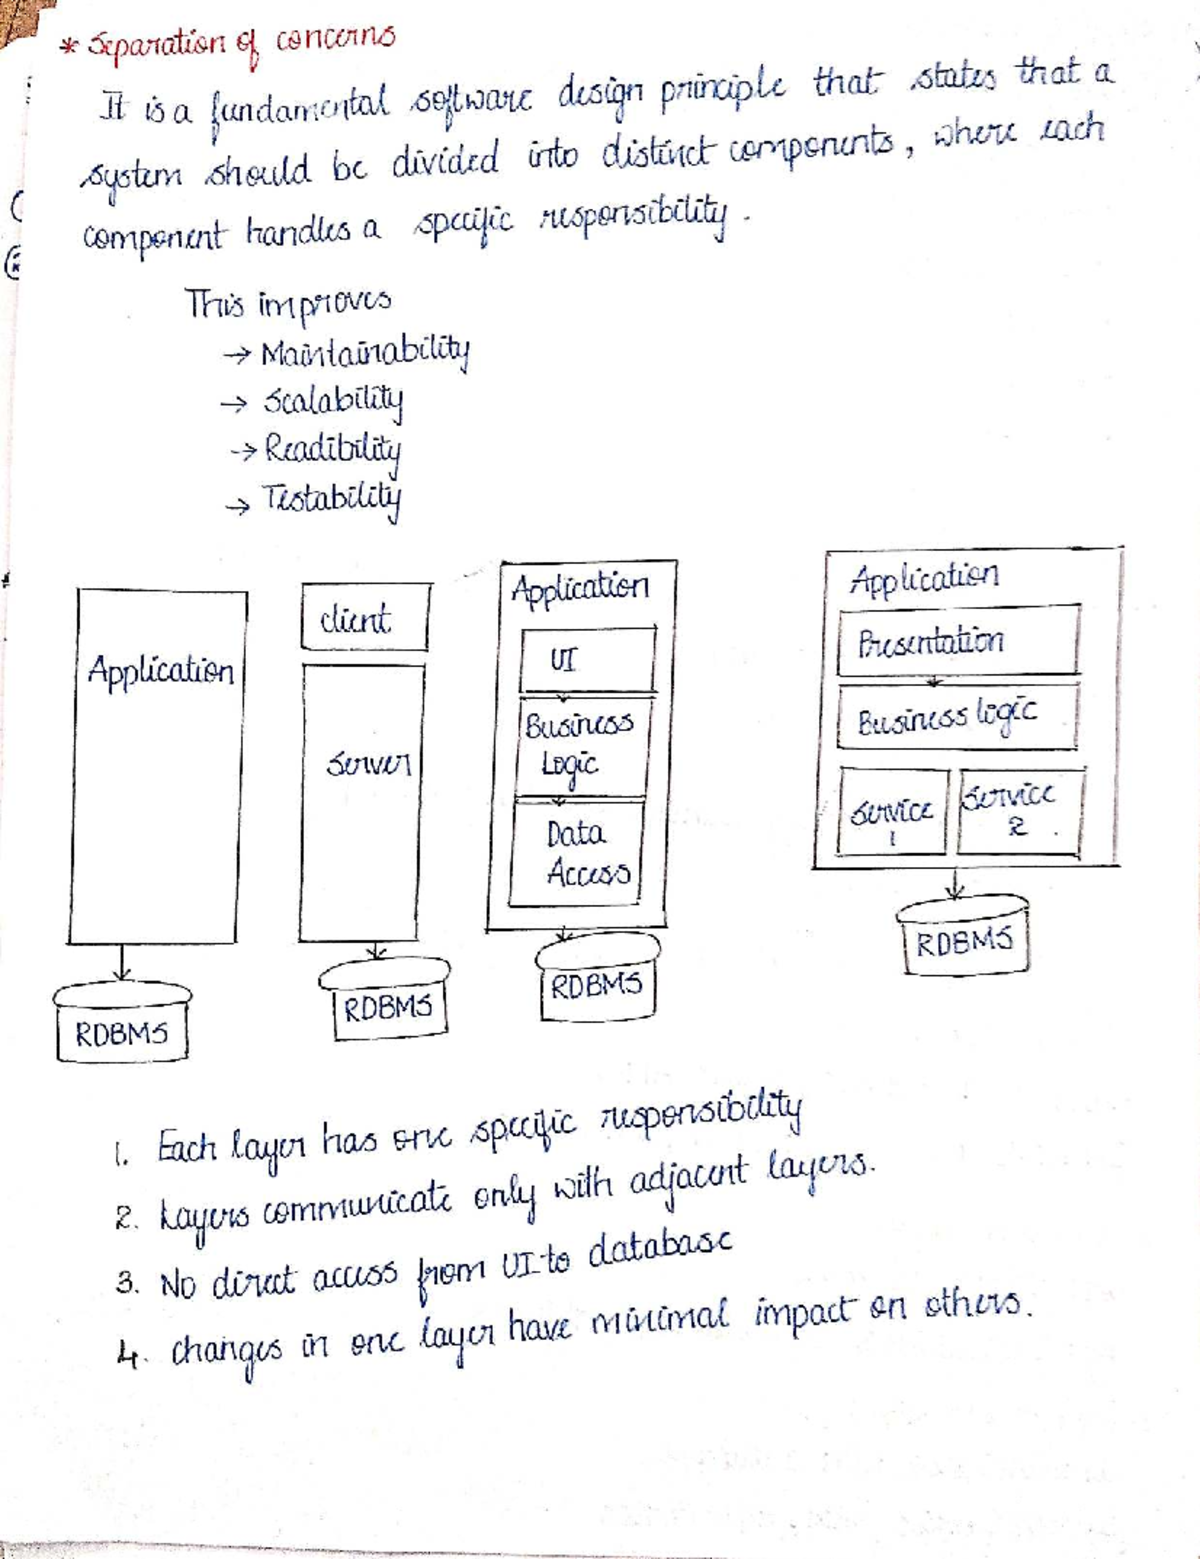 * Separation of concerns
It is a fundamental software design principle that states that a
system should be divided into distinct components, where each
component handles a specific responsibility.
This improves
→ Maintainability
→ Scalability
→ Readibility
→ Testability
Application
RDBMS
client
Server
RDBMS
Application
UI
Business
Logic
Data
Access
RDBMS
Application
Presentation
Business logic
Service
1
Service
2
RDBMS
1. Each layer has one specific responsibility
2. Layers communicate only with adjacent layers.
3. No direct access from UI to database
4. changes in one layer have minimal impact on others.